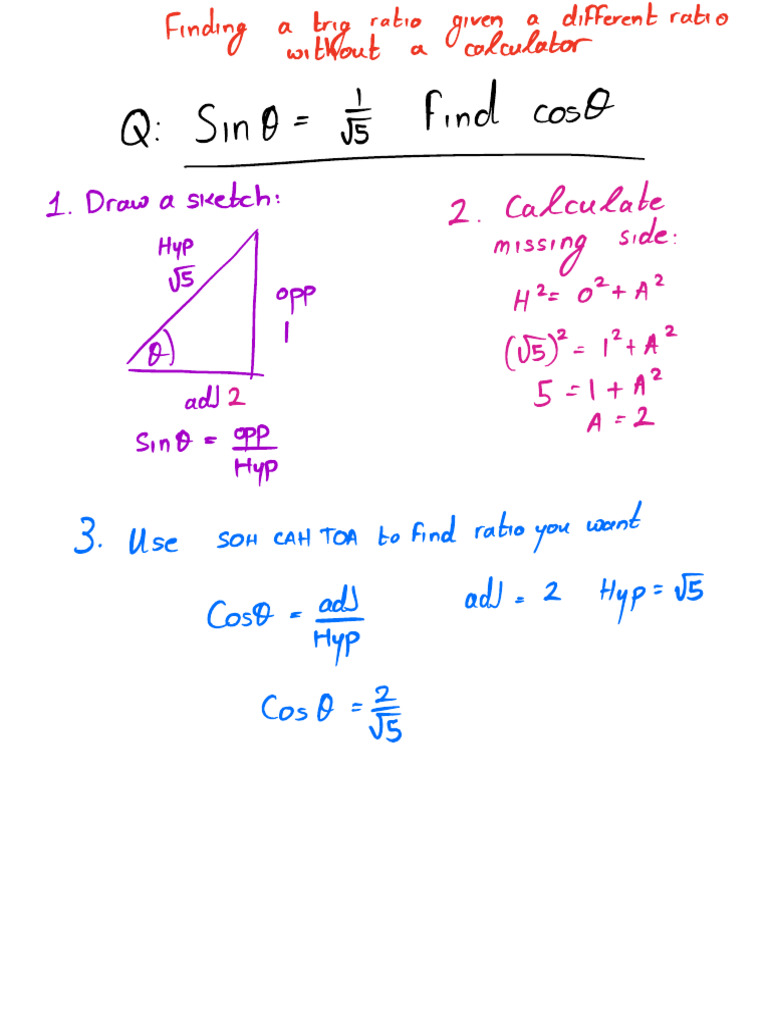 Finding a trig ratio given a different ratio
without a calculator
Q: Sinθ = 1/√5 Find cosθ
1. Draw a sketch:
Hyp
√5
opp
1
θ
adj 2
Sinθ = opp/Hyp
2. Calculate
missing side:
H² = O² + A²
(√5)² = 1² + A²
5 = 1 + A²
A = 2
3. Use SOH CAH TOA to find ratio you want
Cosθ = adj/Hyp adj = 2 Hyp = √5
Cosθ = 2/√5